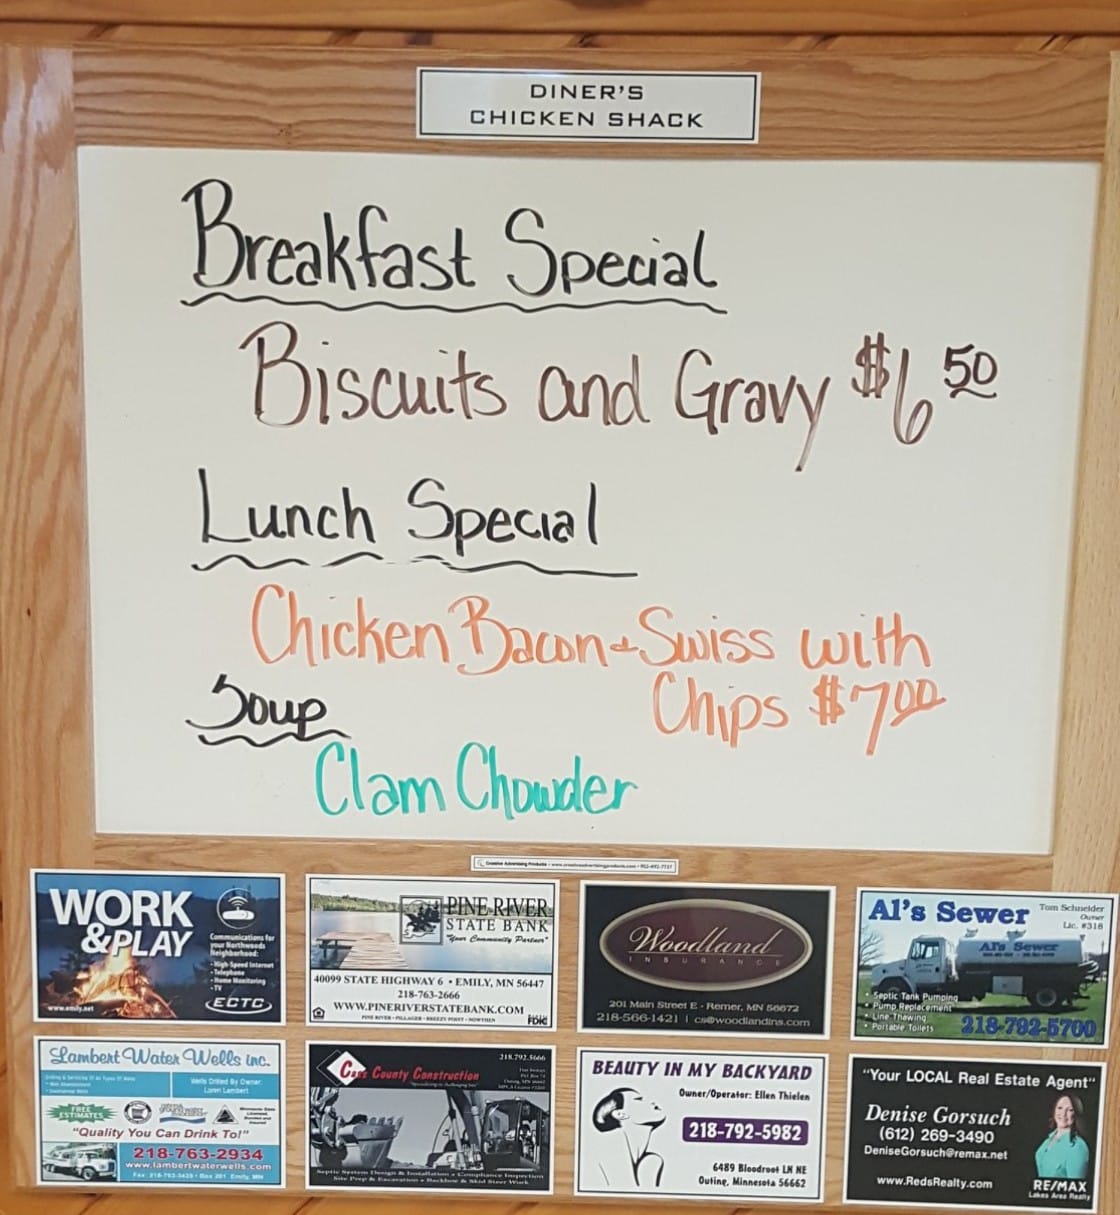 DINER'S
CHICKEN SHACK
Breakfast Special
Biscuits and Gravy $6 50
Lunch Special
Chicken Bacon & Swiss with
Chips $7 00
Soup
Clam Chowder
Creative Advertising Products • www.creativeadvertisingproducts.com • 952-492-7737
WORK
&PLAY
Communications for
your Northwoods
Neighborhood:
• High-Speed Internet
• Telephone
• Home Monitoring
• TV
www.emily.net
ECTC
PINE RIVER
STATE BANK
"Your Community Partner"
40099 STATE HIGHWAY 6 • EMILY, MN 56447
218-763-2666
WWW.PINERIVERSTATEBANK.COM
PINE RIVER • PILLAGER • BREEZY POINT • NOWTHEN
FDIC
Woodland
INSURANCE
201 Main Street E - Remer, MN 56672
218-566-1421 | cs@woodlandins.com
Al's Sewer
Tom Schneider
Owner
Lic. #318
Al's Sewer
• Septic Tank Pumping
• Pump Replacement
• Line Thawing
• Portable Toilets
218-792-5700
Lambert Water Wells inc.
Drilling & Servicing Of All Types Of Wells
• Well Abandonment
• Geothermal Wells
Wells Drilled By Owner:
Loren Lambert
FREE
ESTIMATES
Minnesota State
Licensed,
Bonded and
Insured
"Quality You Can Drink To!"
218-763-2934
www.lambertwaterwells.com
Fax: 218-763-3429 • Box 201 Emily, MN
Cass County Construction
218.792.5666
Septic System Design & Installation • Compliance Inspection
Site Prep & Excavation • Backhoe & Skid Steer Work
BEAUTY IN MY BACKYARD
Owner/Operator: Ellen Thielen
218-792-5982
6489 Bloodroot LN NE
Outing, Minnesota 56662
"Your LOCAL Real Estate Agent"
Denise Gorsuch
(612) 269-3490
DeniseGorsuch@remax.net
www.RedsRealty.com
RE/MAX
Lakes Area Realty